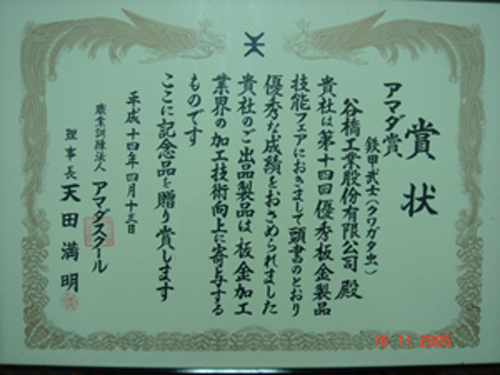 賞状
アマダ賞
鉄甲武士(クワガタ虫)
谷橋工業股份有限公司 殿
貴社は第十四回優秀板金製品
技能フェアにおきまして頭書のとおり
優秀な成績をおさめられました
貴社のご出品製品は板金加工
業界の加工技術向上に寄与する
ものです
ここに記念品を贈り賞します
平成十四年四月十三日
職業訓練法人 アマダスクール
理事長 天田満明
16 11 2005